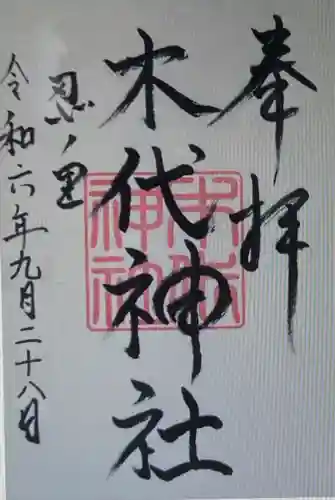 奉拝
木代神社
忍ノ里
令和六年九月二十八日
木代神社